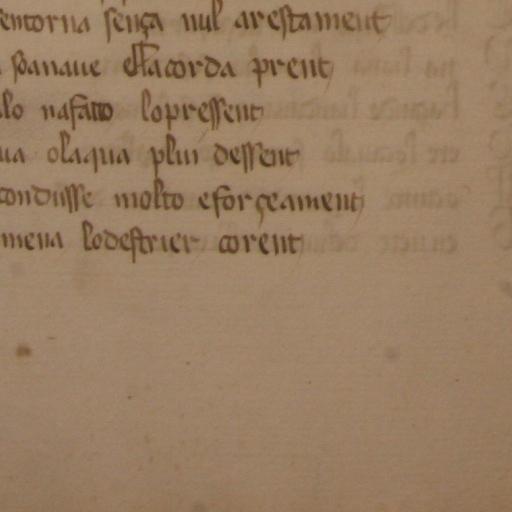 sentorna sença nul arestament
soanaue ella corda prent
lo nafato lopressent
ua olaqua plui dessent
condusse molto eforçeament
mena lodestrier corent